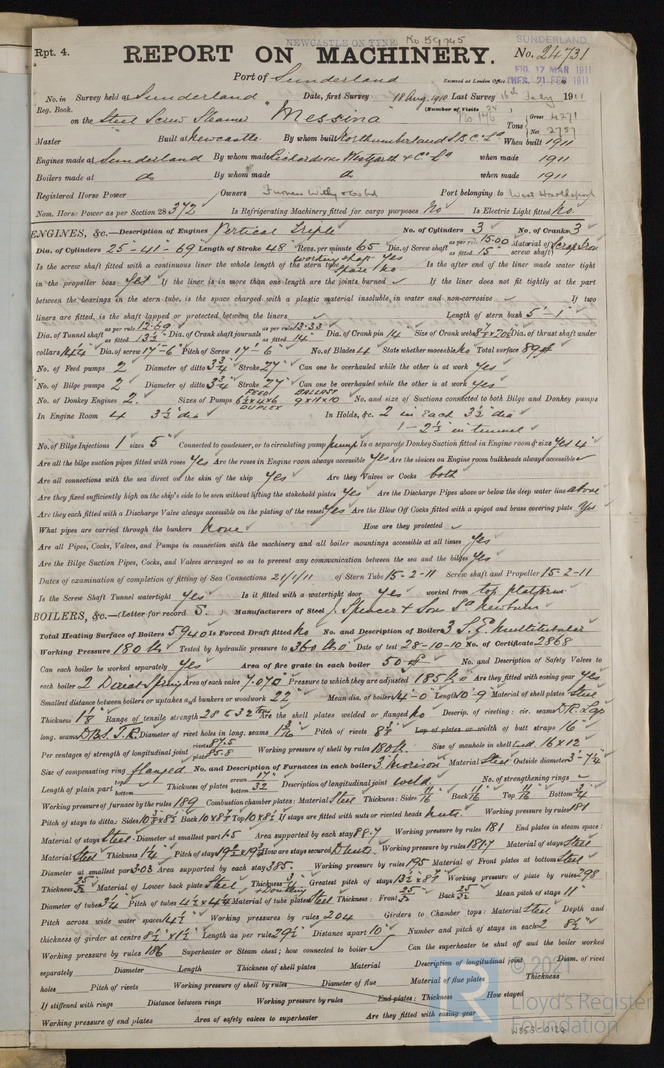 NEWCASTLE ON TYNE No. 59745
SUNDERLAND.
Rpt. 4. REPORT ON MACHINERY. No. 24731
FRI. 17 MAR 1911
TUES. 21 FEB 1911
Port of Sunderland Received at London Office
No. in Survey held at Sunderland Date, first Survey 18 Aug. 1910 Last Survey 18th July 1911
Reg. Book. (Number of Visits
on the Steel Screw Steamer "Messina" Tons Gross 4271 Net 2757
Master Built at Newcastle By whom built Northumberland S.B. Co. Ld. When built 1911
Engines made at Sunderland By whom made Richardsons Westgarth & Co. Ld. when made 1911
Boilers made at do By whom made do when made 1911
Registered Horse Power Owners Furness Withy & Co Ld Port belonging to West Hartlepool
Nom. Horse Power as per Section 28 372 Is Refrigerating Machinery fitted for cargo purposes No Is Electric Light fitted No.
ENGINES, &c.—Description of Engines Vertical Triple No. of Cylinders 3 No. of Cranks 3
Dia. of Cylinders 25-41-69 Length of Stroke 48 Revs. per minute 65 Dia. of Screw shaft as per rule 15.00 as fitted 15 Material of screw shaft Scrap Iron
Is the screw shaft fitted with a continuous liner the whole length of the stern tube working shaft yes spare no Is the after end of the liner made water tight
in the propeller boss Yes If the liner is in more than one length are the joints burned ✓ If the liner does not fit tightly at the part
between the bearings in the stern tube, is the space charged with a plastic material insoluble in water and non-corrosive ✓ If two
liners are fitted, is the shaft lapped or protected between the liners ✓ Length of stern bush 5'-1"
Dia. of Tunnel shaft as per rule 12.69 as fitted 13½ Dia. of Crank shaft journals as per rule 13.33 as fitted 14" Dia. of Crank pin 14" Size of Crank webs Dia. of thrust shaft under
collars 14¼ Dia. of screw 17-6 Pitch of Screw 17-6 No. of Blades 4 State whether moveable No Total surface 89
No. of Feed pumps 2 Diameter of ditto 3¾ Stroke 27" Can one be overhauled while the other is at work Yes
No. of Bilge pumps 2 Diameter of ditto 3¾ Stroke 27" Can one be overhauled while the other is at work Yes
No. of Donkey Engines 2. Sizes of Pumps FEED 6½x4x6 DUPLEX BALLAST 9x11x10 No. and size of Suctions connected to both Bilge and Donkey pumps
In Engine Room 4 3½ dia In Holds, &c. 2 in each 3½ dia
1-2½ in tunnel
No. of Bilge Injections 1 sizes 5" Connected to condenser, or to circulating pump pump Is a separate Donkey Suction fitted in Engine room & size Yes 4"
Are all the bilge suction pipes fitted with roses Yes Are the roses in Engine room always accessible Yes Are the sluices on Engine room bulkheads always accessible ✓
Are all connections with the sea direct on the skin of the ship Yes Are they Valves or Cocks both
Are they fixed sufficiently high on the ship's side to be seen without lifting the stokehold plates Yes Are the Discharge Pipes above or below the deep water line above
Are they each fitted with a Discharge Valve always accessible on the plating of the vessel Yes Are the Blow Off Cocks fitted with a spigot and brass covering plate Yes
What pipes are carried through the bunkers None How are they protected ✓
Are all Pipes, Cocks, Valves, and Pumps in connection with the machinery and all boiler mountings accessible at all times Yes
Are the Bilge Suction Pipes, Cocks, and Valves arranged so as to prevent any communication between the sea and the bilges Yes
Dates of examination of completion of fitting of Sea Connections 21/1/11 of Stern Tube 15-2-11 Screw shaft and Propeller 15-2-11
Is the Screw Shaft Tunnel watertight Yes Is it fitted with a watertight door Yes worked from top platform
BOILERS, &c.—(Letter for record S.) Manufacturers of Steel J. Spencer & Son Ld Newburn
Total Heating Surface of Boilers 5940 Is Forced Draft fitted No No. and Description of Boilers 3 S.E. Multitubular
Working Pressure 180 lbs Tested by hydraulic pressure to 360 lbs Date of test 28-10-10 No. of Certificate 2868
Can each boiler be worked separately Yes Area of fire grate in each boiler 50 No. and Description of Safety Valves to
each boiler 2 Direct Spring Area of each valve 7.070 Pressure to which they are adjusted 185 lbs Are they fitted with easing gear Yes
Smallest distance between boilers or uptakes and bunkers or woodwork 22" Mean dia. of boilers 14-0 Length 10-9 Material of shell plates Steel
Thickness 1⅛ Range of tensile strength 28 & 32 tons Are the shell plates welded or flanged No Descrip. of riveting: cir. seams D.R. Lap
long. seams D.B.S. T.R. Diameter of rivet holes in long. seams 1 3/16 Pitch of rivets 8½ Lap of plates or width of butt straps 16"
Per centages of strength of longitudinal joint rivets 87.5 plate 85.8 Working pressure of shell by rules 180 lb Size of manhole in shell End 16x12
Size of compensating ring flanged No. and Description of Furnaces in each boiler 3 Morison Material Steel Outside diameter 3-7¼
Length of plain part top bottom Thickness of plates crown bottom 17/32 Description of longitudinal joint weld. No. of strengthening rings ✓
Working pressure of furnace by the rules 189 Combustion chamber plates: Material Steel Thickness: Sides 11/16 Back 11/16 Top 11/16 Bottom ¾
Pitch of stays to ditto: Sides Back Top If stays are fitted with nuts or riveted heads nuts. Working pressure by rules 181
Material of stays Steel Diameter at smallest part 1.5 Area supported by each stay 88.7 Working pressure by rules 181 End plates in steam space:
Material Steel Thickness Pitch of stays How are stays secured D nuts Working pressure by rules 181.7 Material of stays Steel
Diameter at smallest part 3.03 Area supported by each stay 385. Working pressure by rules 195 Material of Front plates at bottom Steel
Thickness 25/32 Material of Lower back plate Steel Thickness Greatest pitch of stays Working pressure of plate by rules 298
Diameter of tubes 3¼ Pitch of tubes Material of tube plates Steel Thickness: Front 25/32 Back 25/32 Mean pitch of stays 11"
Pitch across wide water spaces 14½ Working pressures by rules 204 Girders to Chamber tops: Material Steel Depth and
thickness of girder at centre Length as per rule 29½ Distance apart 10" Number and pitch of stays in each 2 8½"
Working pressure by rules 186 Superheater or Steam chest; how connected to boiler Can the superheater be shut off and the boiler worked
separately Diameter Length Thickness of shell plates Material Description of longitudinal joint Diam. of rivet
holes Pitch of rivets Working pressure of shell by rules Diameter of flue Material of flue plates Thickness
If stiffened with rings Distance between rings Working pressure by rules End plates: Thickness How stayed
Working pressure of end plates Area of safety valves to superheater Are they fitted with easing gear
© 2021
Lloyd's Register
Foundation